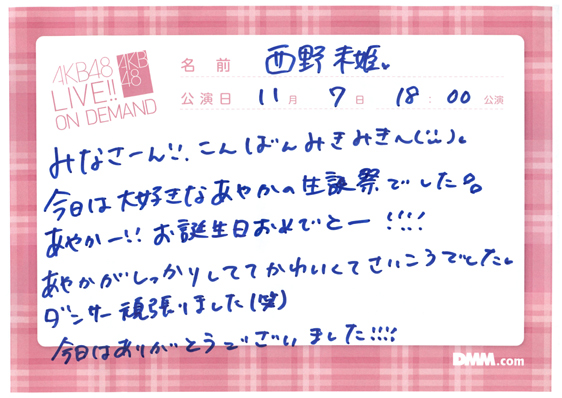 AKB48
LIVE!!
ON DEMAND
AKB
48
名前 西野未姫。
公演日 11月 7日 18:00 公演
みなさーん!!、こんばんみきみき〜(˙˙)。
今日は大好きなあやかの生誕祭でした。
あやかー!! お誕生日おめでとー!!!!
あやかがしっかりしててかわいくてさいこうでした。
ダンサー頑張りました(笑)
今日はありがとうございました!!!!
DMM.com